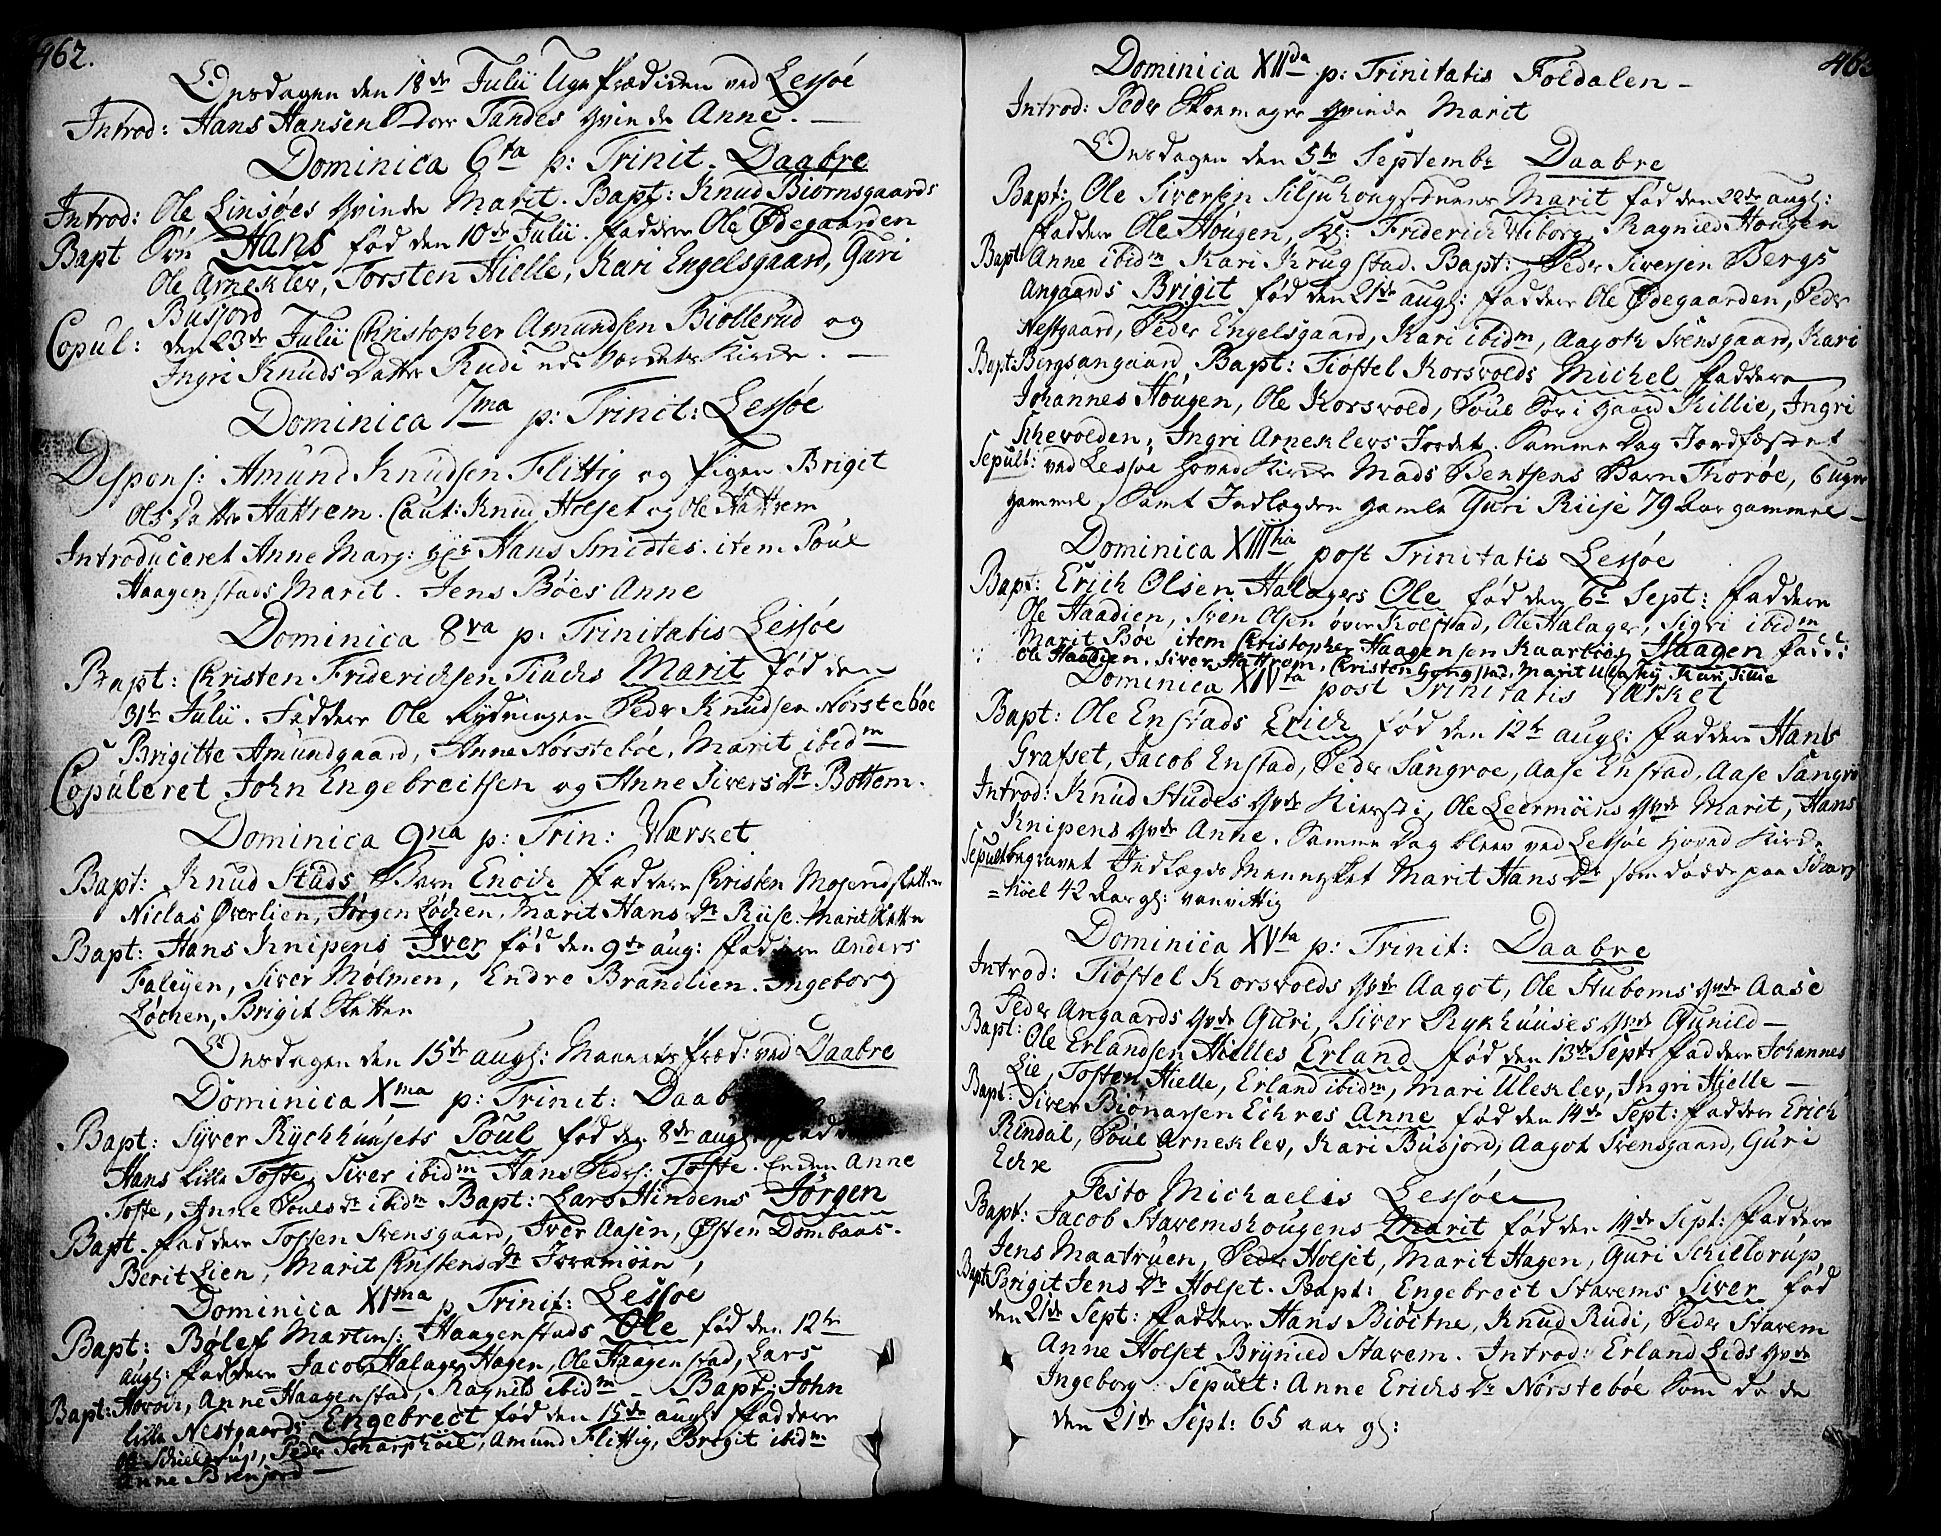 462.
Onsdagen den 18de Julii Uge Prædiken ved Lessøe
Introd: Hans Hansen Tandes Qvinde Anne. —
Dominica 6ta p: Trinit. Daabre
Introd: Ole Linsøes Qvinde Marit. Bapt: Knud Biørnsgaards
Bapt Søn Hans fød den 10de Julii. Faddere Ole Ødegaarden
Ole Arneklev, Torsten Hielle, Kari Engelsgaard, Guri
Busjord
Copul: den 23de Julii Christopher Amundsen Biøllerud og
Ingri Knuds Datter Rudi Kirke. —
Dominica 7ma p: Trinit: Lessøe
Despons: Amund Knudsen Flittig og Pigen Brigit
Ols Datter Hattrem. Caut: Knud Holset og Ole Hattrem
Introduceret Anne Marg: Hans Smidtes. item Poul
Haagenstads Marit. Jens Bøes Anne
Dominica 8va p. Trinitatis Lessøe
Bapt: Christen Friderichsen Marit fød den
31te Julii. Faddere Ole Rydningen Peder Knudsen Norstebøe
Brigitte Amundgaard, Anne Norstebøe, Marit ibidm
Copuleret John Engebrechtsen og Anne Sivers Dr Bottem.
Dominica 9na p: Trin: Værket
Bapt: Knud Studs Barn Enoch Faddere Christen
Niclas Øverlien, Jørgen Løchen, Marit Hans Dr Riise. Marit Sletten
Bapt: Hans Knipens Iver fød den 9de aug: Faddere Anders
Faleyen, Siver Mølmen, Endre Brandlien. Ingeborg
Løchen, Brigit Sletten
Onsdagen den 15de augs: Maaneds Præd: ved Daabre
Dominica Xma p: Trinit: Daab
Bapt: Syver Rychhuusets Poul fød den 8de augs:
Hans Lille Tofte, Siver ibidm Hans Peders: Tofte. Anne
Tofte, Anne Pouls Dr ibidm Bapt: Lars Hindens Jørgen
Bapt. Faddere Tosten Svensgaard, Iver Aasen, Østen Dombaas.
Berit Lien, Marit Christens Dr
Dominica XIma p Trinit: Lessøe
Bapt: Bølef Martins: Haagenstads Ole fød den 12te
augs: Faddere Jacob Halager Hagen, Ole Haagenstad, Lars
Bapt: Anne Haagenstad, Ragnild ibidm — Bapt: John
Lille Nestgaards Engebrect fød den 15de augs: Faddere
Schieldrup, Peder Scharphøel, Amund Flittig, Brigit ibidm
Anne Brenjord —
463
Dominica XIIda p: Trinitatis Foldalen —
Introd: Peder Skomager Qvinde Marit
Onsdagen den 5te Septembr Daabre
Bapt: Ole Siversen Marit fød den 22de augs:
Faddere Ole Hougen, Kl: Friderich Wiborg, Ragnied Hougen
Bapt: Anne ibidm Kari Krugstad. Bapt: Peder Siversen Bergs
Angaards Brigit fød den 21de augs: Faddere Ole Ødegaarden, Peder
Nestgaard, Peder Engelsgaard, Kari ibidm, Aagoth Svensgaard, Kari
Bapt: Bergsangaard, Bapt: Tiøstel Korsvolds Michel Faddere
Johannes Hougen, Ole Korsvold, Poul Sør i gaard Killie, Ingri
Schevolden, Ingri Arneklevs Jordet. Samme Dag Jordfæstet
Sepult: ved Lessøe Hoved Kirke Mads Bentsens Barn Thorøe, 6 uger
gammel, Samt Indlagden gamle Guri Riise 79 Aar gammel —
Dominica XIIItia post Trinitatis Lessøe
Bapt: Erich Olsen Halagers Ole fød den 6te Sept: Faddere
Ole Haadien, Sven Olsen øver Kolstad, Ole Halager, Sigri ibidm
Marit Bøe item Christopher Haagensen Kaarbøes Haagen Fadd:
Ole Haadien, Siver Hattrem, Christen Gongstad, Marit Ulahey Kari Killie
Dominica XIVta post Trinitatis Værket
Bapt: Ole Enstads Erich fød den 12te augs: Faddere Hans
Grafset, Jacob Enstad, Peder Sangroe, Aase Enstad, Aase Sangro
Introd: Knud Studes Qvde Kiersti, Ole Leermoens Qvde Marit, Hans
Knipens Qvde Anne. Samme Dag blev ved Lessøe Hoved Kirke
Sepult begravet Indlagde Mennesket Marit Hans Dr som døde paa
= høel 42 Aar gl: vanvittig
Dominica XVta p: Trinit: Daabre
Introd: Tiøstel Korsvolds Qvde Aagot, Ole Stuboms Qvde Aase
Peder Angaards Qvde Guri, Siver Rykhuuses Qvde Gunild —
Bapt: Ole Erlandsen Hielles Erland fød den 13de Septr Faddere Johannes
Lie, Tosten Hielle, Erland ibidm, Mari Uleklev, Ingri Hjelle —
Bapt: Siver Biønarsen Echres Anne fød den 14de Sept: Faddere Erich
Rindal, Poul Arneklev, Kari Busjord, Aagot Svensgaard, Guri
Echre
Festo Michaelis Lessøe
Bapt: Jacob Stavemshougens Marit fød den 14de Sept: Faddere
Jens Maatruen, Peder Holset, Marit Hagen, Guri Schieldrup,
Bapt: Brigit Jens Dr Holset. Bapt: Engebrect Stavems Siver fød
den 21de Sept: Faddere Hans Biøctne, Knud Rudi, Peder Stavem
Anne Holset Brynied Stavem. Introd: Erland Lids Qvde
Ingeborg. Sepult: Anne Erichs Dr Nørstebøe som døde
den 21de Sept: 65 aar gl: